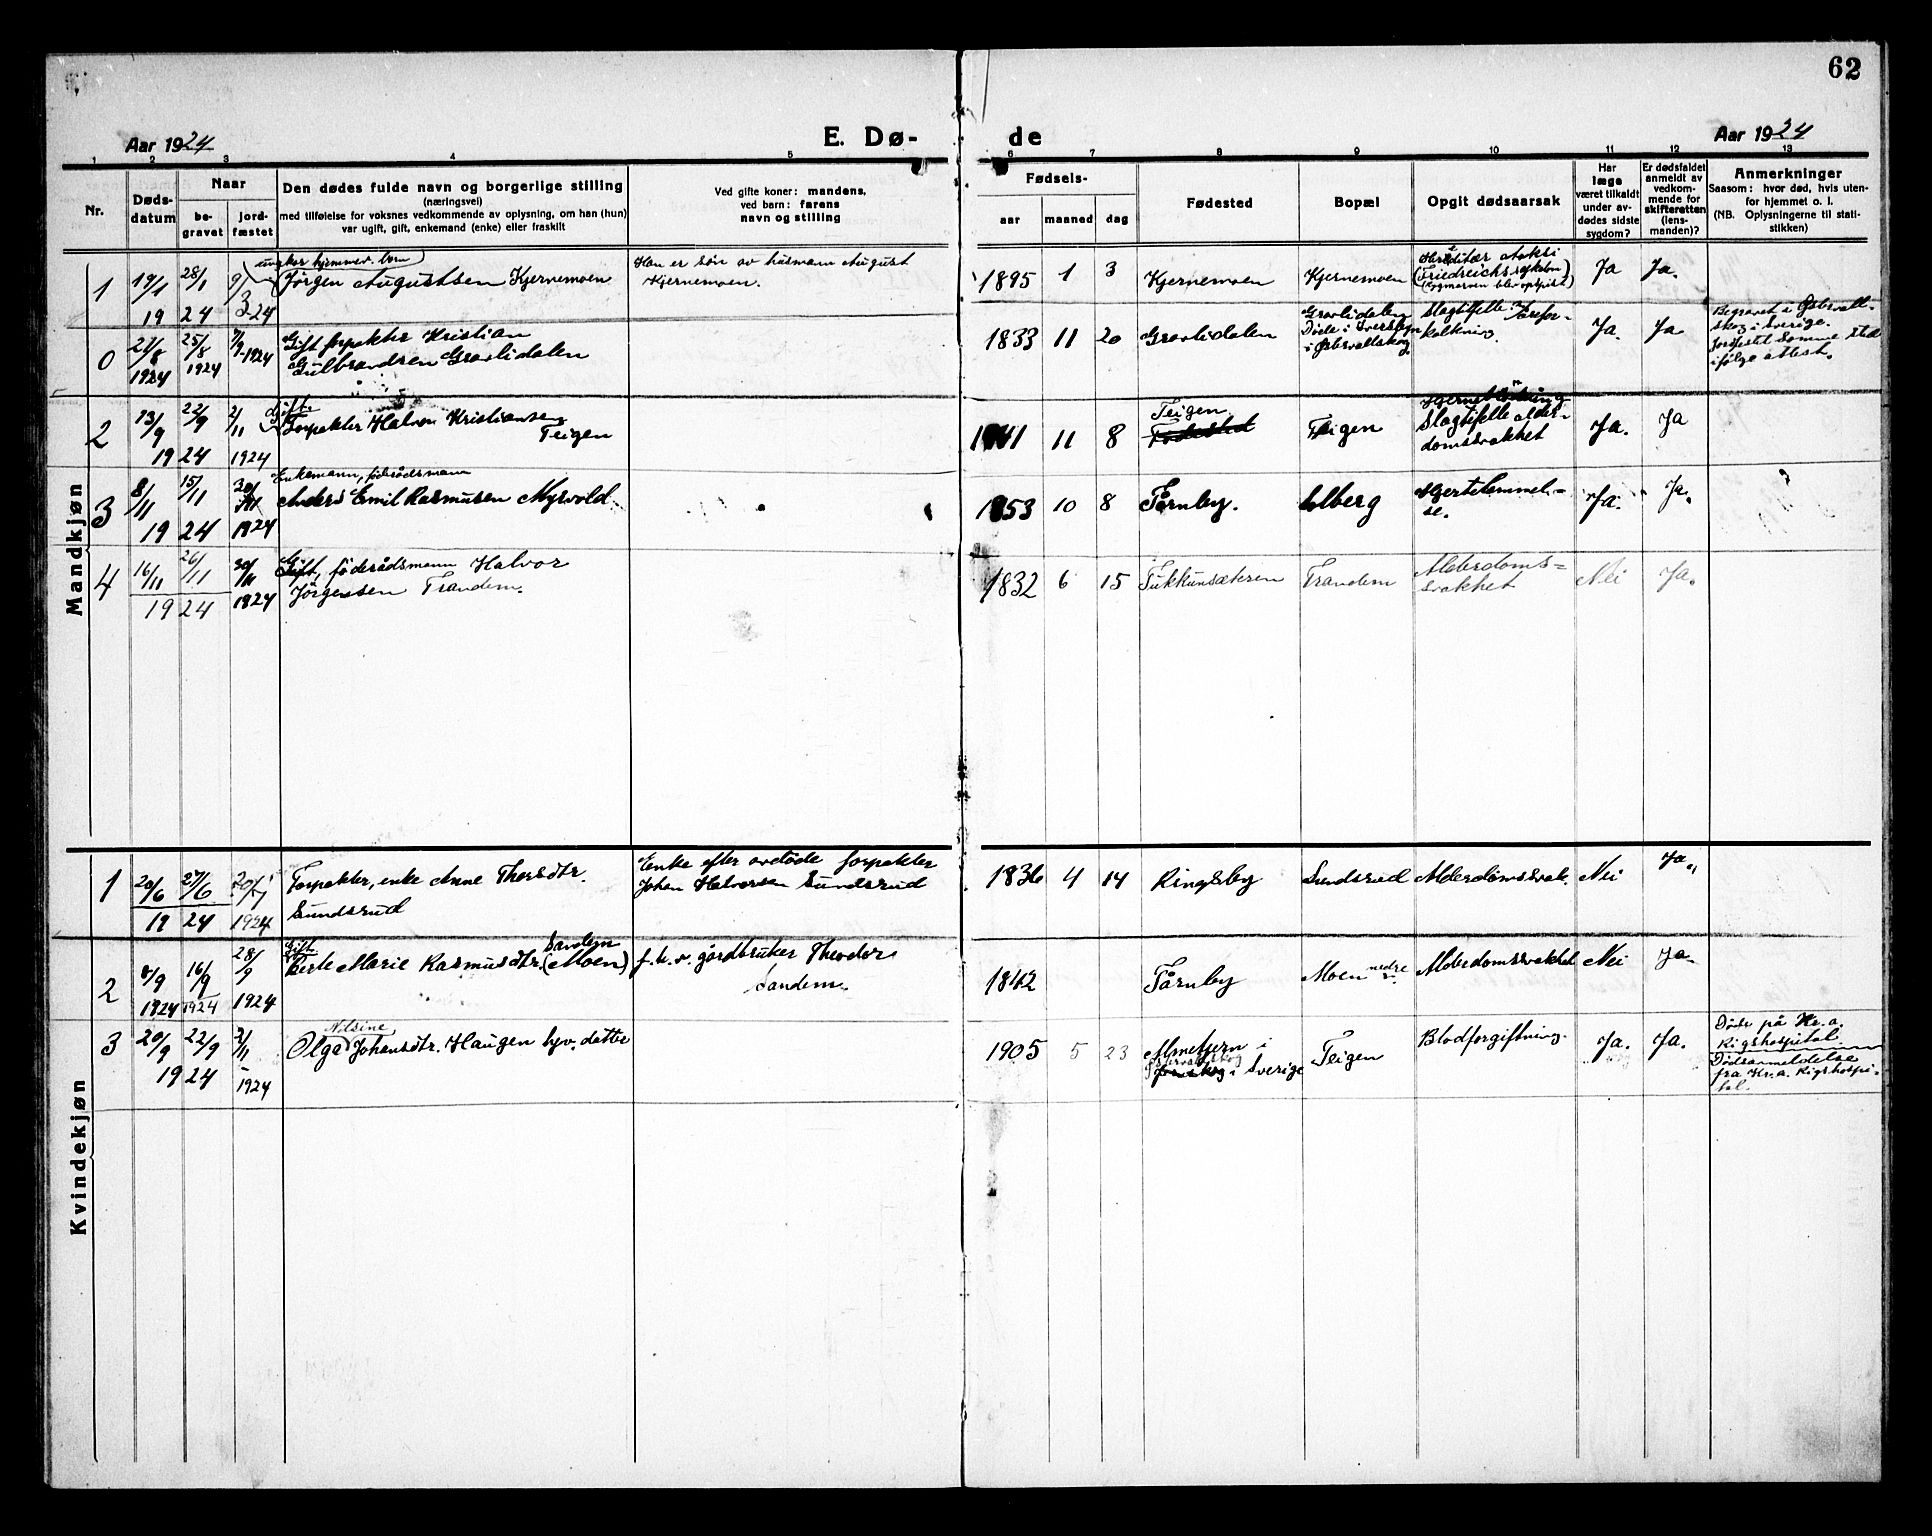 62
Aar 1924
E. Dø-
de
Aar 1924
1 2 3 4 5 6 7 8 9 10 11 12 13
Nr.
Døds-
datum
Naar
be-
gravet
jord-
fæstet
Den dødes fulde navn og borgerlige stilling
(næringsvei)
med tilføielse for voksnes vedkommende av oplysning, om han (hun)
var ugift, gift, enkemand (enke) eller fraskilt
Ved gifte koner: mandens,
ved barn: farens
navn og stilling
Fødsels-
aar maaned dag
Fødested
Bopæl
Opgit dødsaarsak
Har
læge
været tilkaldt
under av-
dødes sidste
sygdom?
Er dødsfaldet
anmeldt av
vedkom-
mende for
skifteretten
(lens-
manden)?
Anmerkninger
Saasom: hvor død, hvis uten-
for hjemmet o. l.
(NB. Oplysningerne til stati-
stikken)
Mandkjøn
1
19/1 28/1 9/3
19 24 24
ungkar hjemmev. barn
Jørgen Augustsen Kjernemoen
Han er søn av husmann August
Kjernemoen.
1895 1 3
Kjernemoen
Kjernemoen
Hereditær Ataksi
(Friedreichs sykdom)
Ja Ja.
0
21/8 25/8 7/9
1924 1924 -1924
Gift forpakter Kristian
Gulbrandsen Gravlidalen
1833 11 20
Gravlidalen
Gravlidalen
Døde i
i Østervallskog
Slagtilfelle. Årefor-
kalkning.
Ja. Ja
Begravet i Østervall-
skog i Sverige.
Jordfestet samme sted
ifølge attest.
2
13/9 22/9 2/11
19 24 1924
gift.
Forpakter Halvor Kristiansen
Teigen
1841 11 8
Teigen
Fødested
Teigen
Slagtilfelle alder-
domssvakhet
Ja. Ja
3
8/11 15/11 30/11
19 24 1924
Enkemann, føderådsmann
Anders Emil Rasmusen Myrvold.
1853 10 8
Tårnby.
Elberg
Hjertelammel-
se.
Ja. Ja.
4
16/11 26/11 30/11
19 24 1924
Gift, føderådsmann Halvor
Jørgensen Trandem.
1832 6 15
Tukkunsæteren
Trandem
Alderdoms=
svakhet
Nei Ja.
Kvindekjøn
1
20/6 27/6 20/7
19 24 1924
Forpakter, enke Anne Thorsdtr.
Sundsrud
Enke efter avdøde forpakter
Johan Halvorsen Sundsrud
1836 4 14
Ringsby
Sundsrud
Alderdomssvak.
Nei Ja.
2
4/9 16/9 28/9
1924 1924 1924
Gift.
Berte Marie Rasmusdtr. (Moen)
Sandem
f. h. v. gårdbruker Theodor
Sandem.
1842
Tårnby
Moen nedre
Alderdomssvakhet
Nei Ja.
3
20/9 22/9 2/11
19 24 1924
Nilsine
Olga Johansdtr. Haugen hjv. datter
1905 5 23
i
i Sverige
Teigen
Blodforgiftning.
Ja. Ja.
Døde på Kr.a.
Rigshospital.
Dødsanmeldelse
fra Kr.a. Rigshospi-
tal.